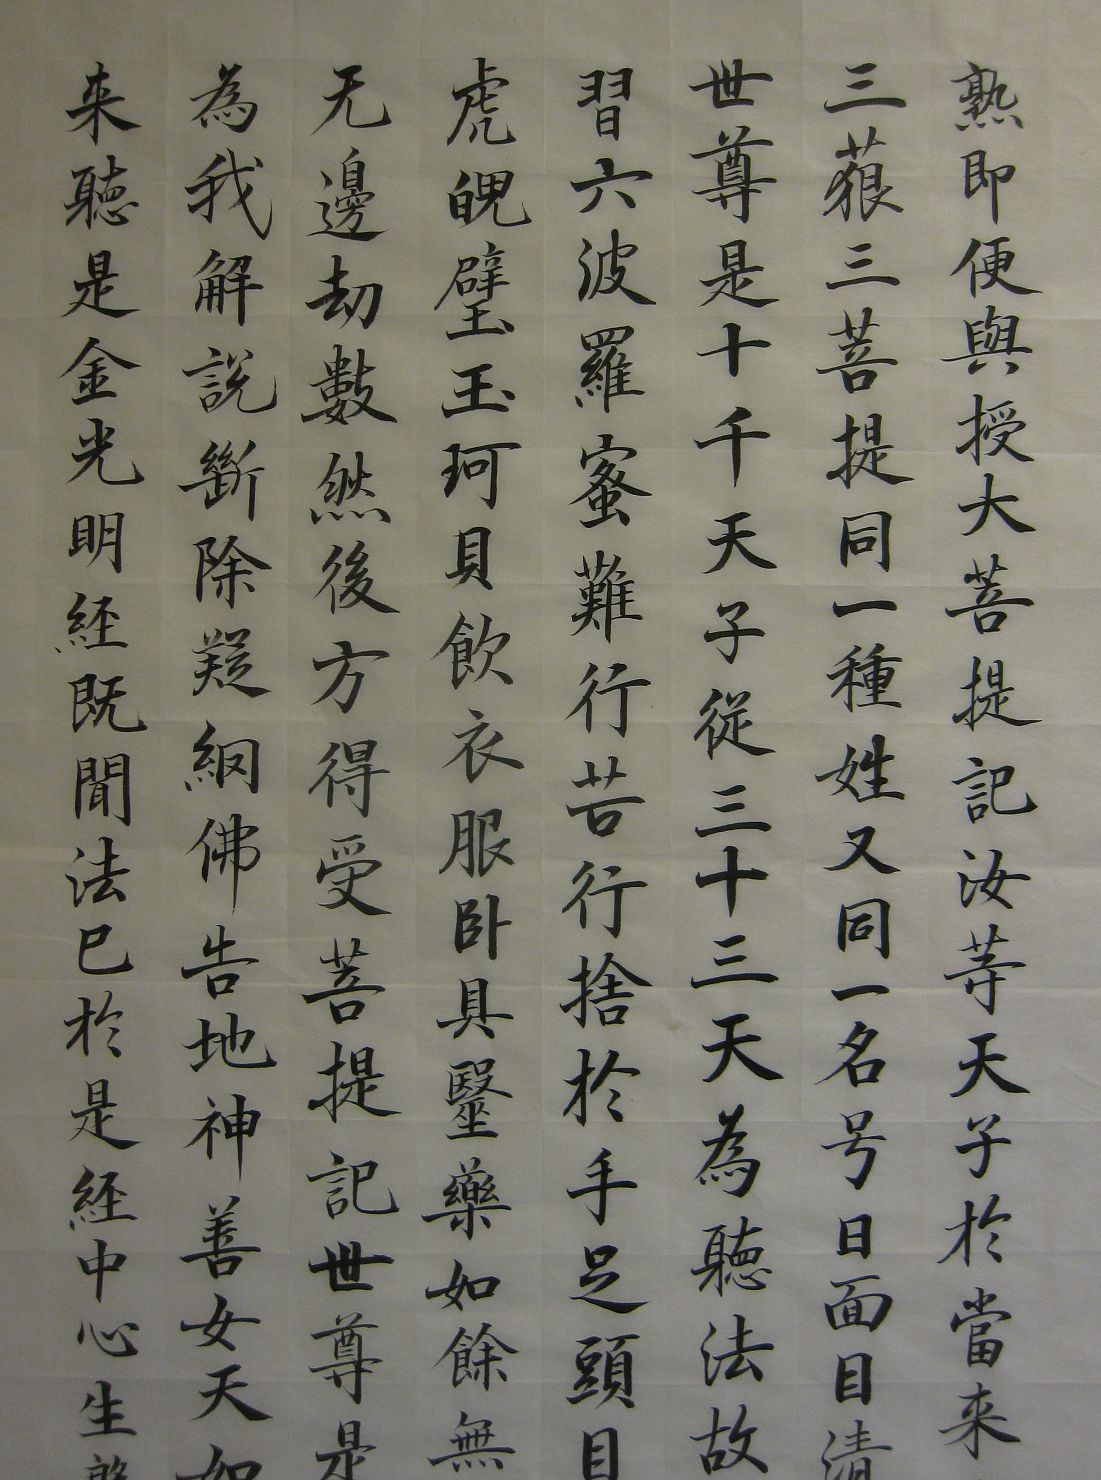 熟即便與授大菩提記汝等天子於當来
三藐三菩提同一種姓又同一名号日面目清
世尊是十千天子従三十三天為聽法故
習六波羅蜜難行苦行捨於手足頭目
虎魄璧玉珂貝飲衣服卧具醫藥如餘無
无邊劫數然後方得受菩提記世尊是
為我解說斷除疑網佛告地神善女天如
来聽是金光明経既聞法已於是経中心生